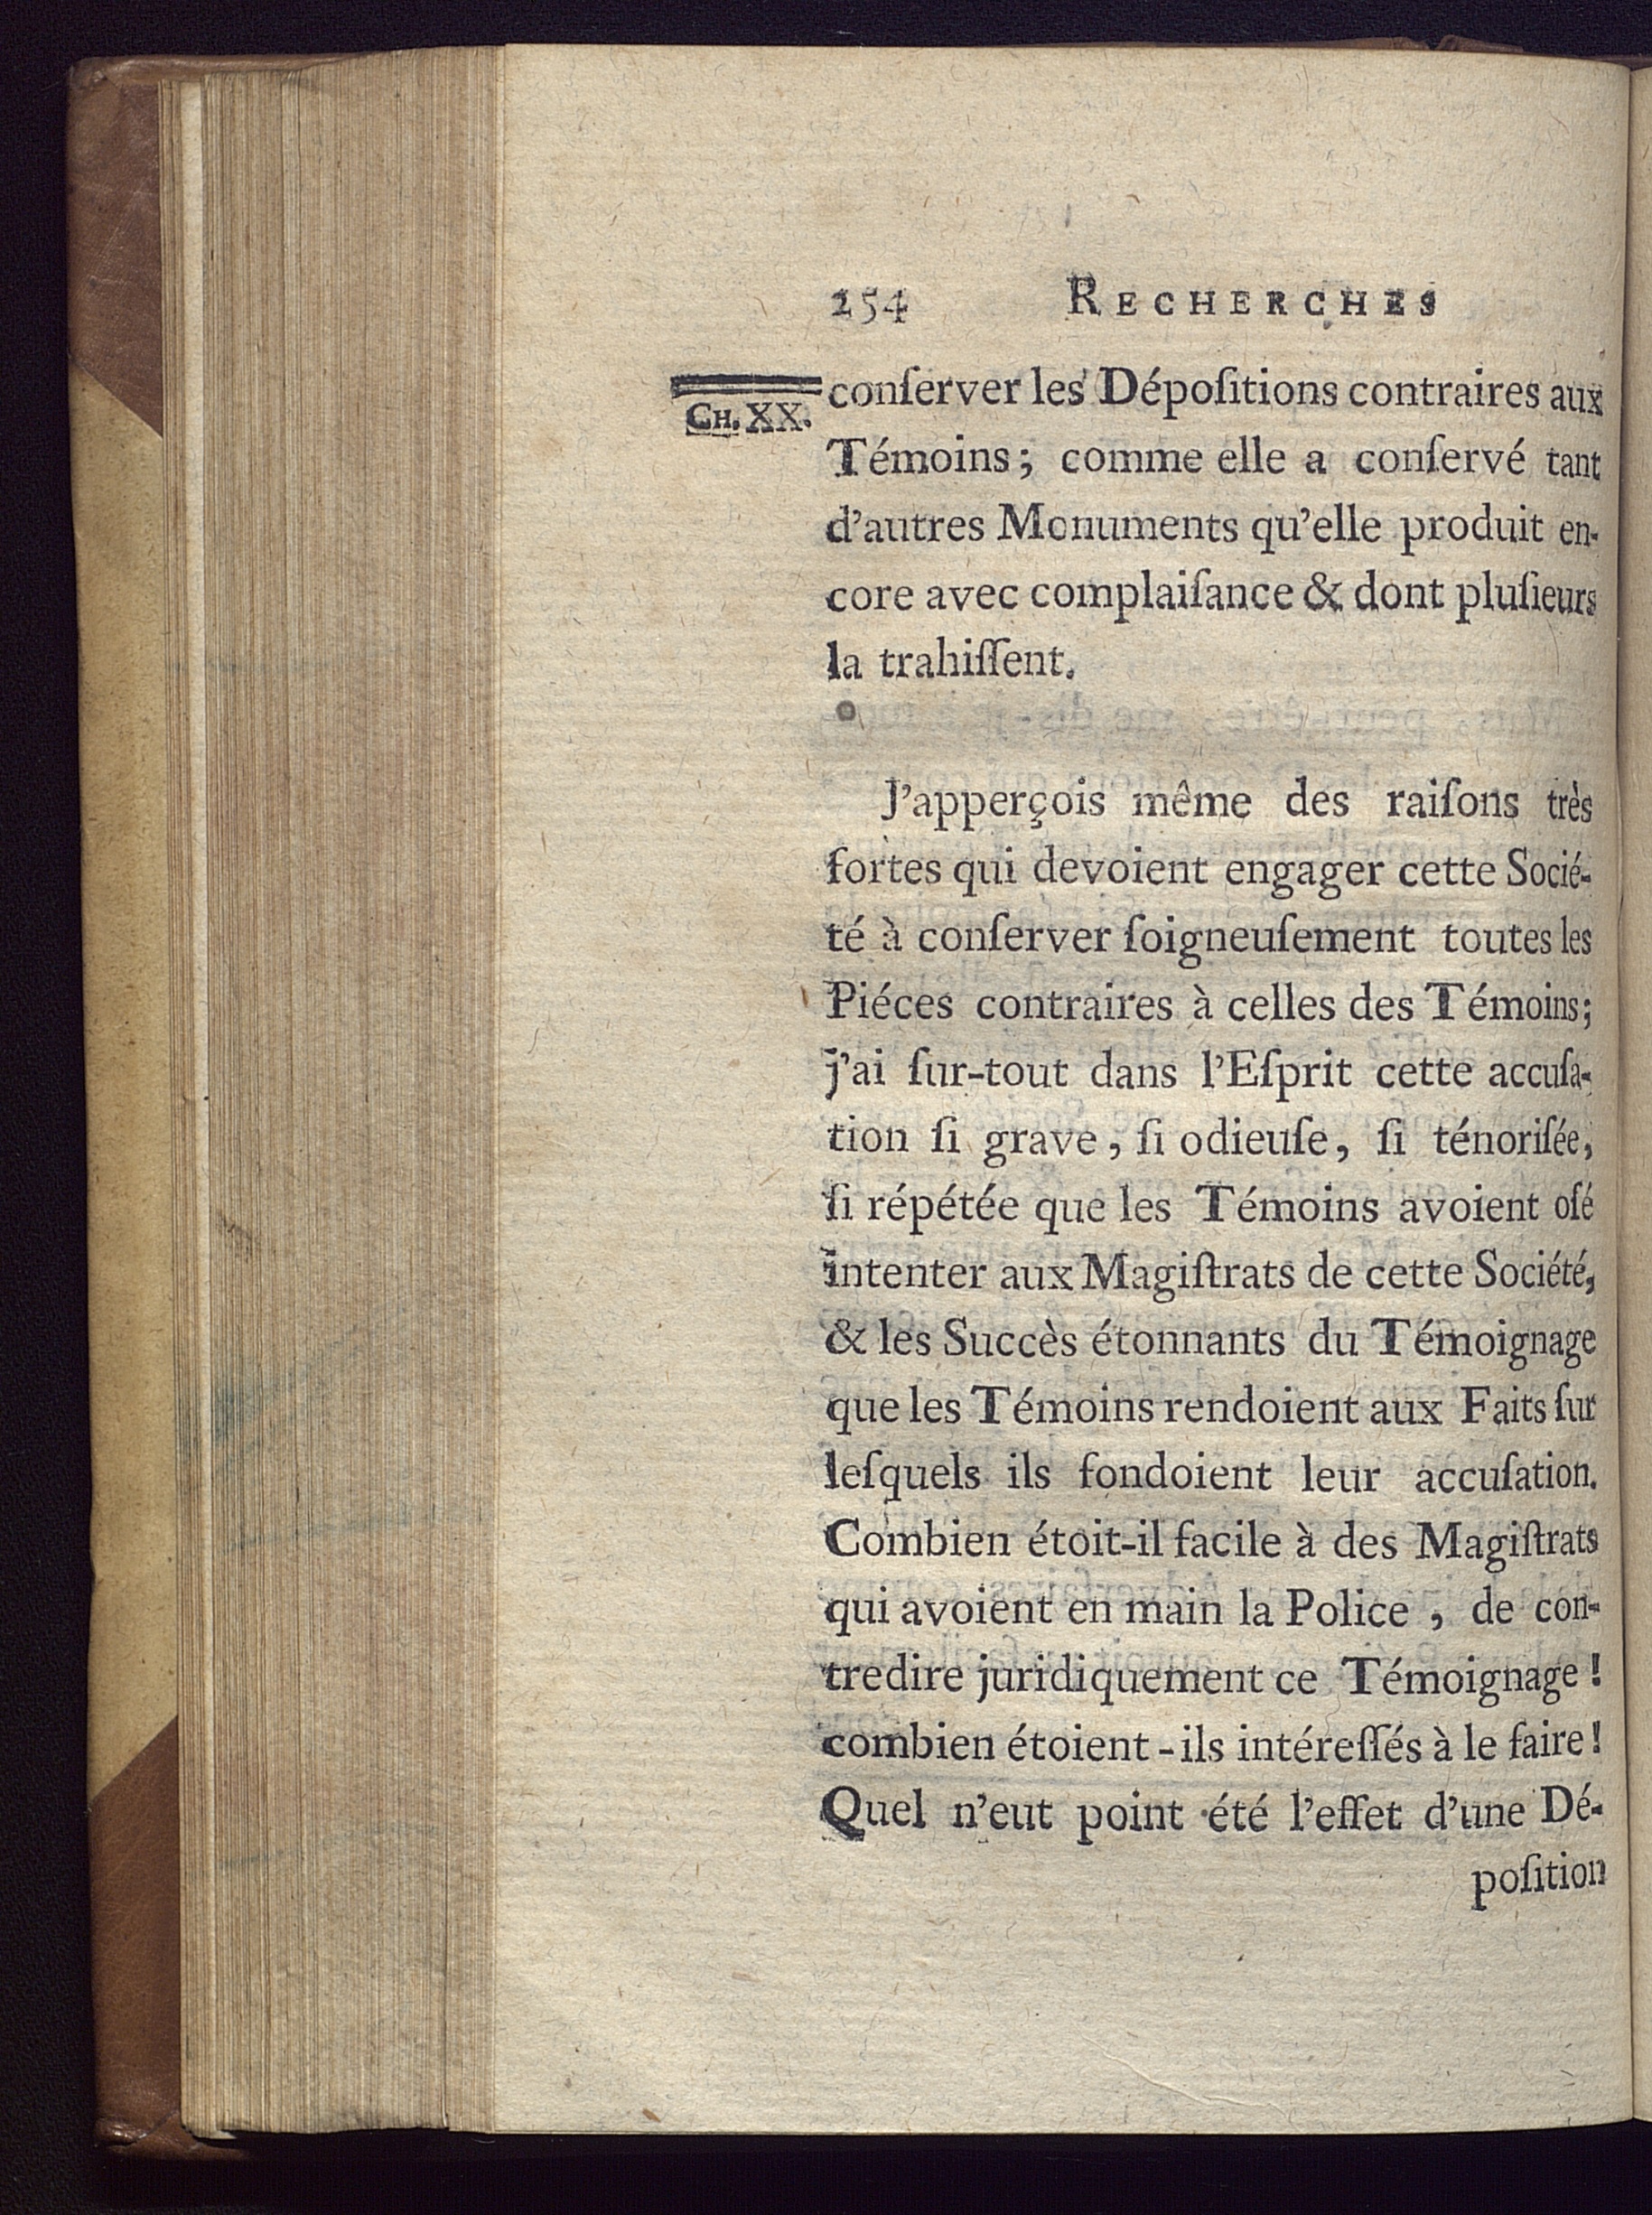 254 RECHERCHES
CH. XX.
conſerver les Dépoſitions contraires aux
Témoins; comme elle a conſervé tant
d'autres Monuments qu'elle produit en-
core avec complaiſance & dont pluſieurs
la trahiſſent.
J'apperçois même des raiſons très
fortes qui devoient engager cette Socié-
té à conſerver ſoigneuſement toutes les
Piéces contraires à celles des Témoins;
j'ai ſur-tout dans l'Eſprit cette accuſa-
tion ſi grave, ſi odieuſe, ſi ténoriſée,
ſi répétée que les Témoins avoient oſé
intenter aux Magiſtrats de cette Société,
& les Succès étonnants du Témoignage
que les Témoins rendoient aux Faits ſur
leſquels ils fondoient leur accuſation.
Combien étoit-il facile à des Magiſtrats
qui avoient en main la Police, de con-
tredire juridiquement ce Témoignage!
combien étoient-ils intéreſſés à le faire!
Quel n'eut point été l'effet d'une Dé-
poſition